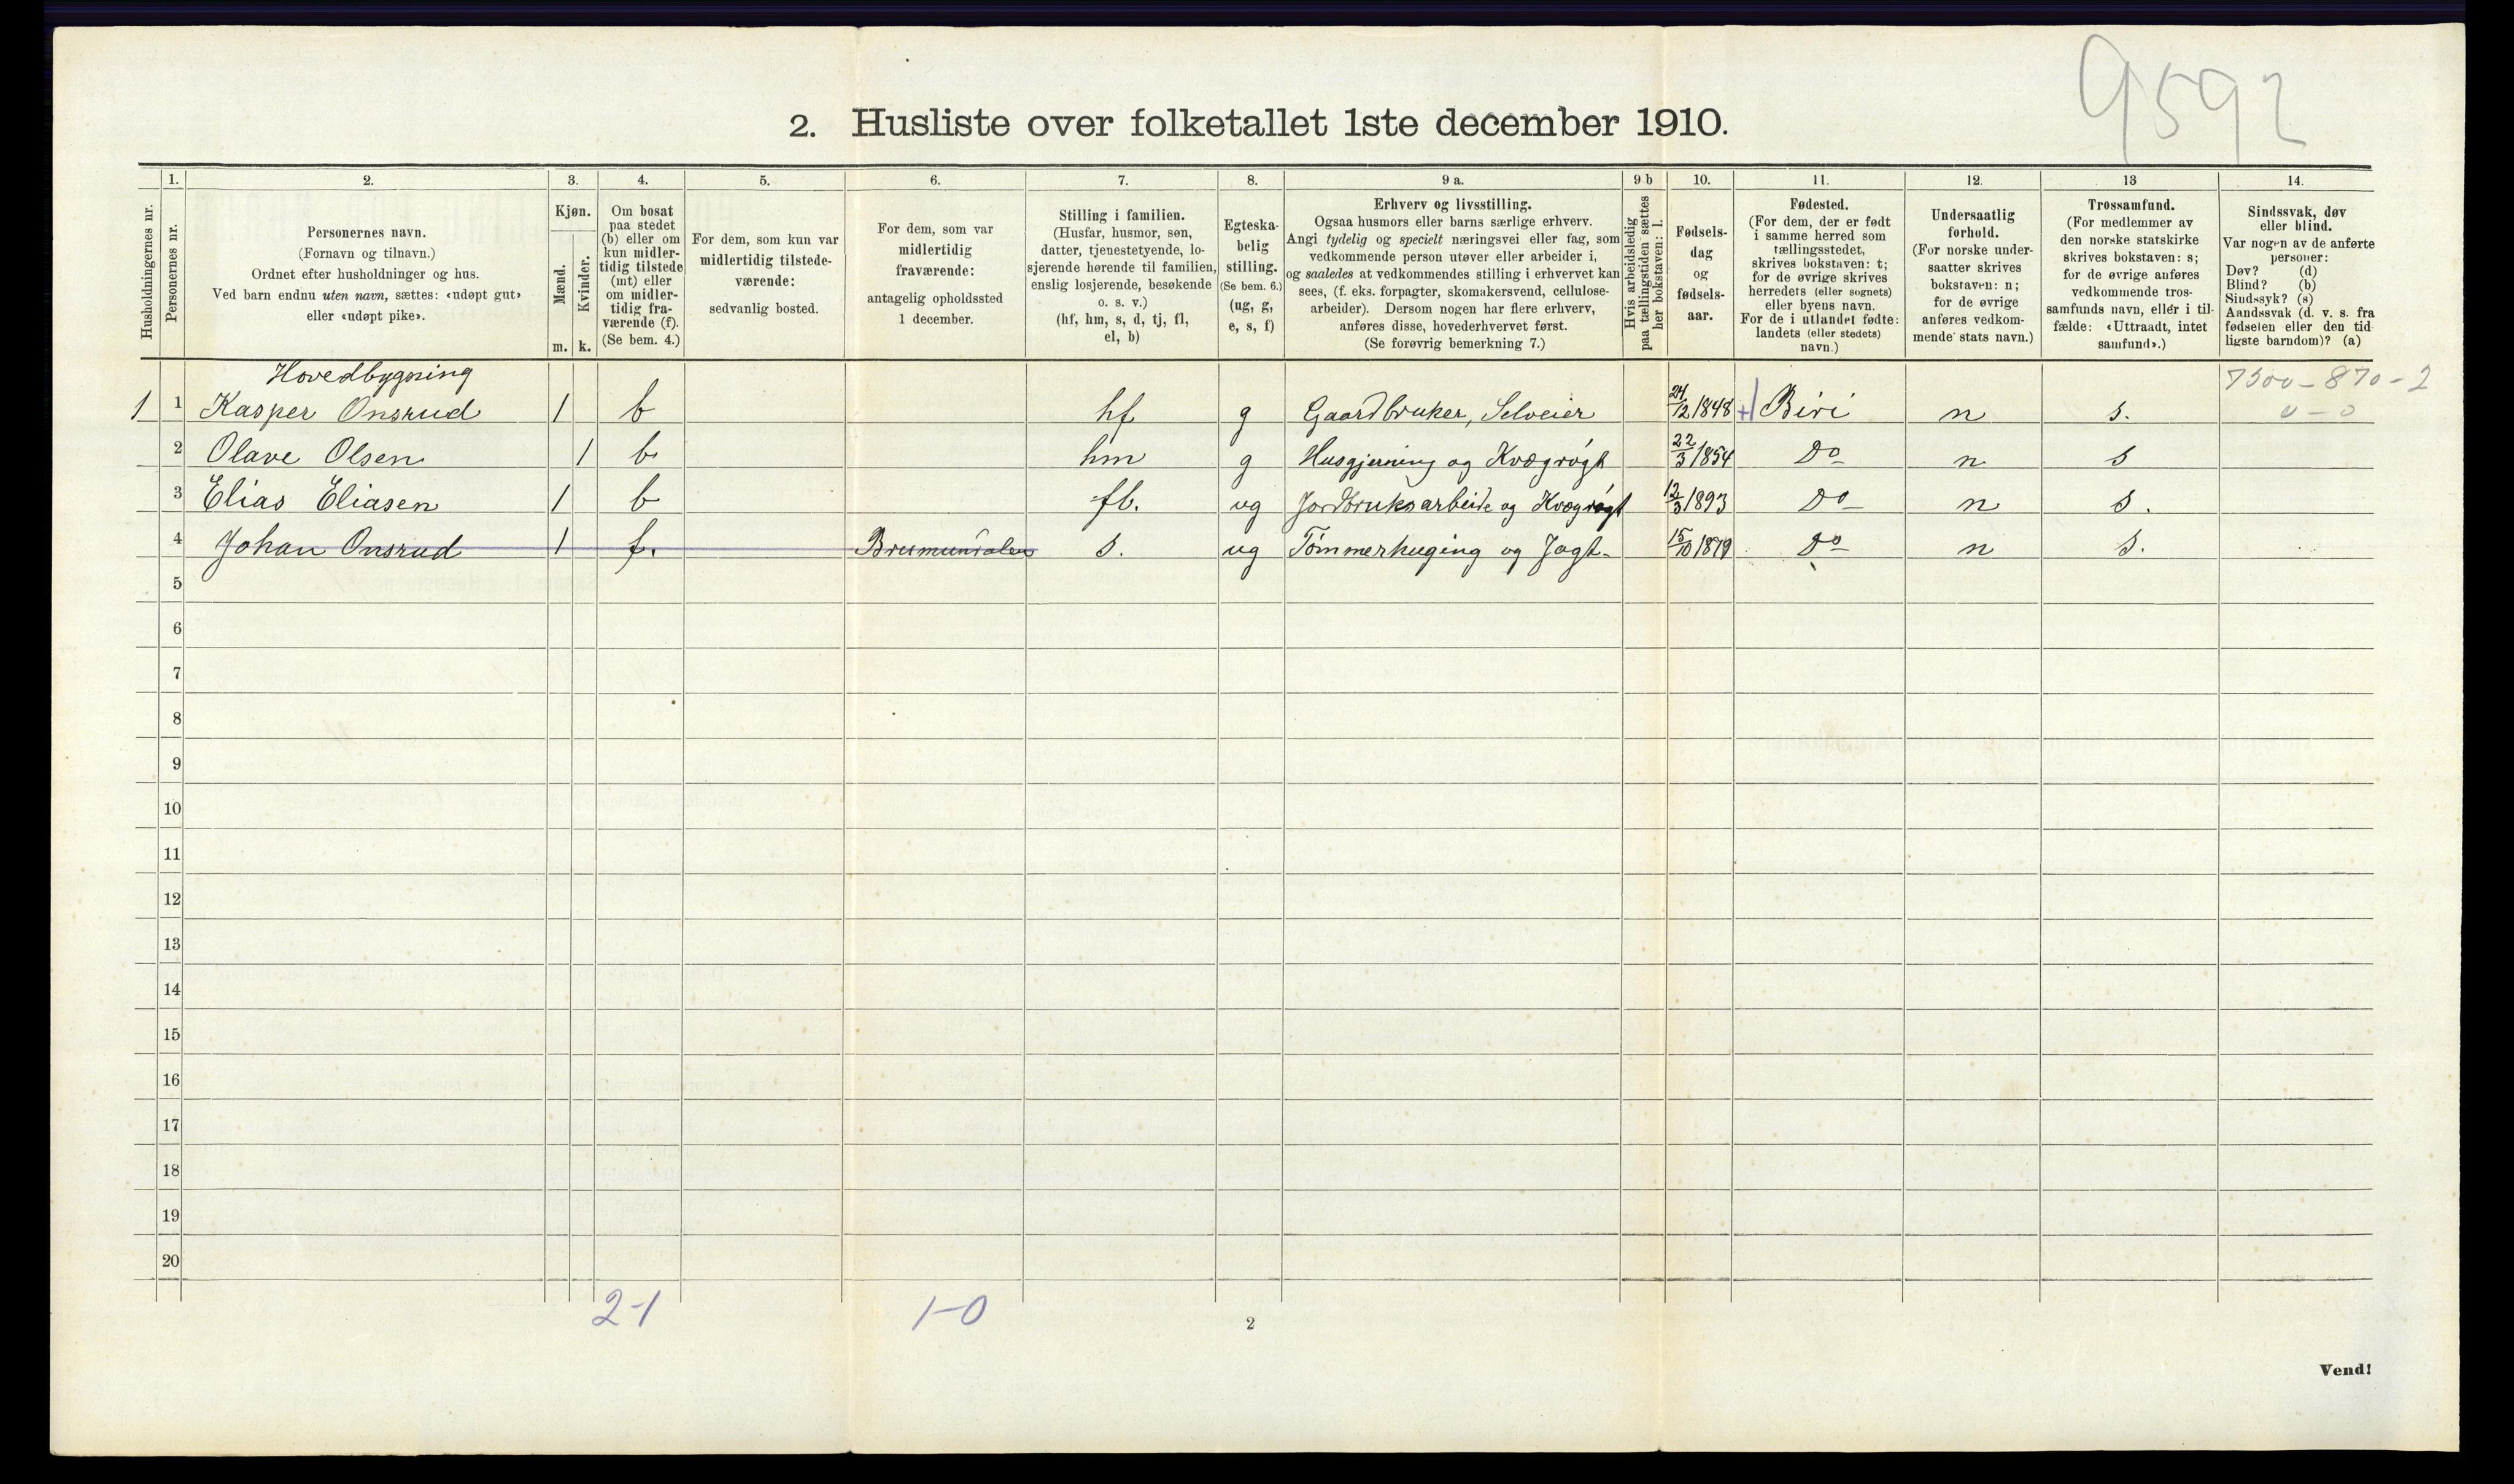 9592
2. Husliste over folketallet 1ste december 1910.
1. 2. 3. 4. 5. 6. 7. 8. 9 a. 9 b 10. 11. 12. 13 14.
Husholdningernes nr.
Personernes nr.
Personernes navn.
(Fornavn og tilnavn.)
Ordnet efter husholdninger og hus.
Ved barn endnu uten navn, sættes: «udøpt gut»
eller «udøpt pike».
Kjøn.
Mænd.
Kvinder.
m. k.
Om bosat
paa stedet
(b) eller om
kun midler-
tidig tilstede
(mt) eller
om midler-
tidig fra-
værende (f).
(Se bem. 4.)
For dem, som kun var
midlertidig tilstede-
værende:
sedvanlig bosted.
For dem, som var
midlertidig
fraværende:
antagelig opholdssted
1 december.
Stilling i familien.
(Husfar, husmor, søn,
datter, tjenestetyende, lo-
sjerende hørende til familien,
enslig losjerende, besøkende
o. s. v.)
(hf, hm, s, d, tj, fl,
el, b)
Egteska-
belig
stilling.
(Se bem. 6.)
(ug, g,
e, s, f)
Erhverv og livsstilling.
Ogsaa husmors eller barns særlige erhverv.
Angi tydelig og specielt næringsvei eller fag, som
vedkommende person utøver eller arbeider i,
og saaledes at vedkommendes stilling i erhvervet kan
sees, (f. eks. forpagter, skomakersvend, cellulose-
arbeider). Dersom nogen har flere erhverv,
anføres disse, hovederhvervet først.
(Se forøvrig bemerkning 7.)
Hvis arbeidsledig
paa tællingstiden sættes
her bokstaven: l.
Fødsels-
dag
og
fødsels-
aar.
Fødested.
(For dem, der er født
i samme herred som
tællingsstedet,
skrives bokstaven: t;
for de øvrige skrives
herredets (eller sognets)
eller byens navn.
For de i utlandet fødte:
landets (eller stedets)
navn.)
Undersaatlig
forhold.
(For norske under-
saatter skrives
bokstaven: n;
for de øvrige
anføres vedkom-
mende stats navn.)
Trossamfund.
(For medlemmer av
den norske statskirke
skrives bokstaven: s;
for de øvrige anføres
vedkommende tros-
samfunds navn, eller i til-
fælde: «Uttraadt, intet
samfund».)
Sindssvak, døv
eller blind.
Var nogen av de anførte
personer:
Døv? (d)
Blind? (b)
Sindssyk? (s)
Aandssvak (d. v. s. fra
fødselen eller den tid-
ligste barndom)? (a)
Hovedbygning 7500-870-2
1 1 Kasper Onsrud 1 b hf g Gaardbruker, Selveier 24/12 1848 + Biri n s. 0-0
2 Olave Olsen 1 b hm g Husgjerning og Kvægrøgt 22/3 1854 Do n s
3 Elias Eliasen 1 b fb. ug Jordbruksarbeide og Kvægrøgt 12/3 1893 Do n s.
4 Johan Onsrud 1 f. Brumundalen s. ug Tømmerhuging og Jagt 15/10 1879 Do n s.
5
6
7
8
9
10
11
12
13
14
15
16
17
18
19
20
2-1 1-0
2
Vend!